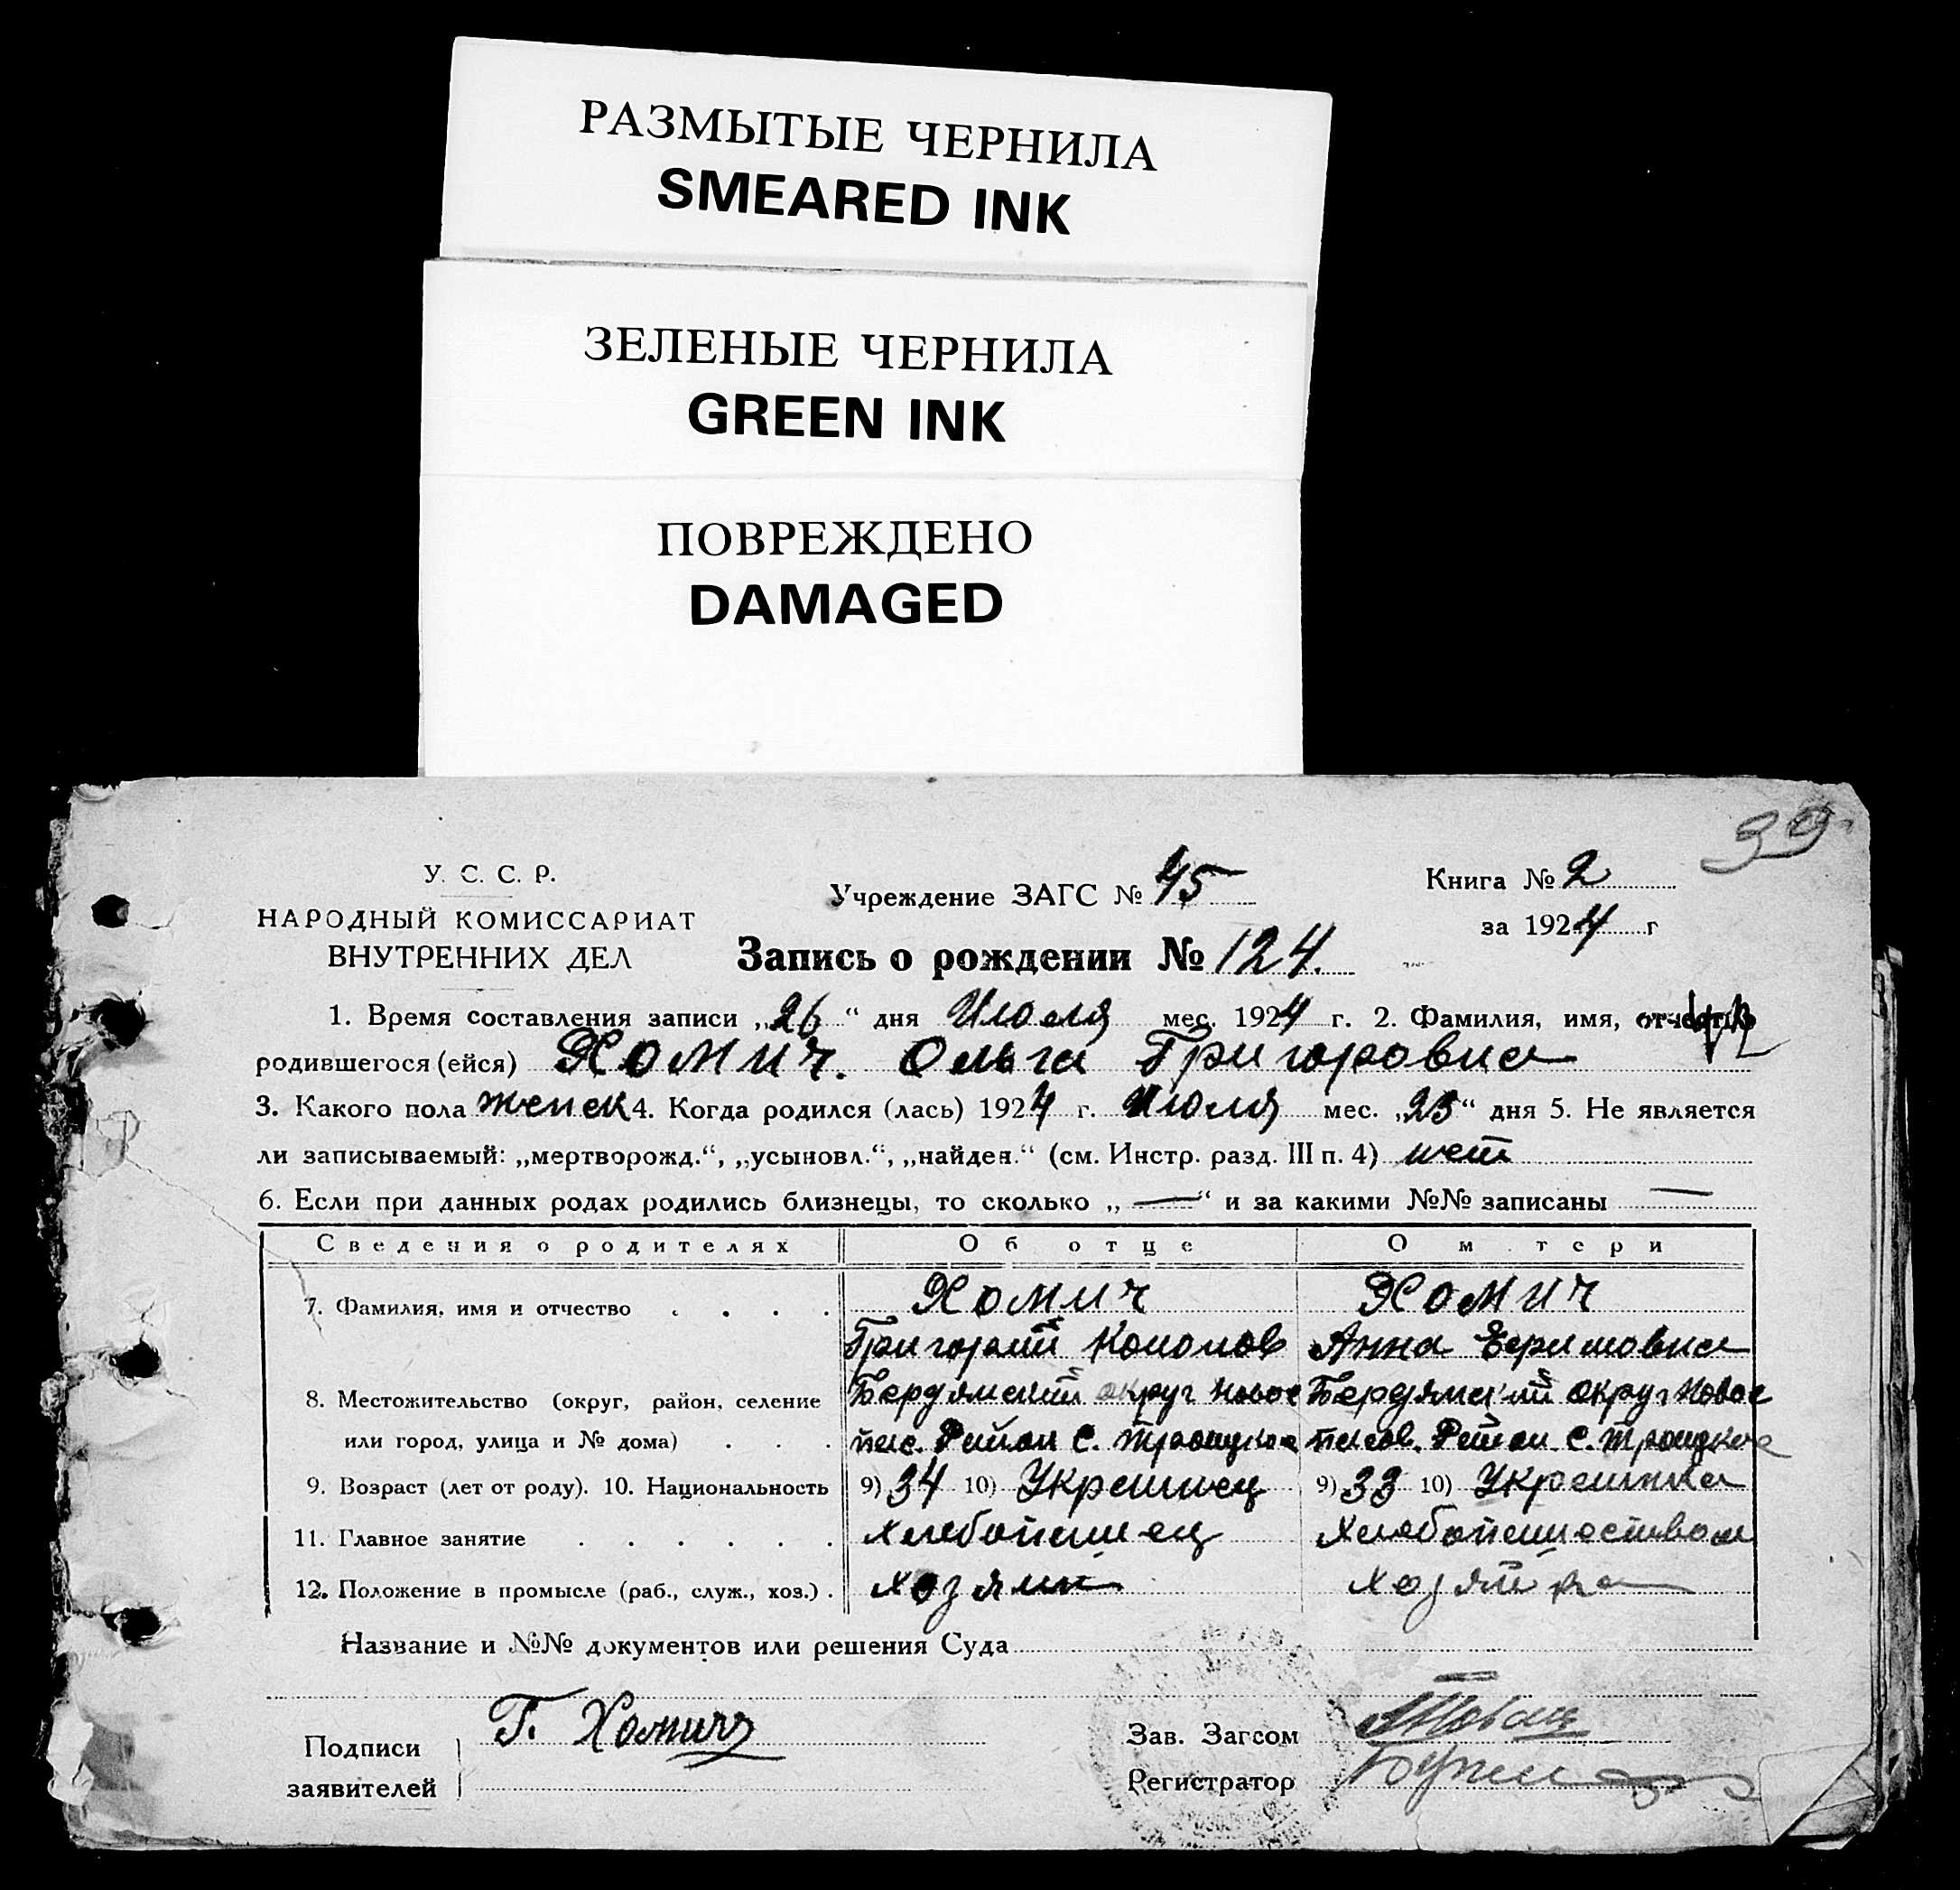 РАЗМЫТЫЕ ЧЕРНИЛА
SMEARED INK
ЗЕЛЕНЫЕ ЧЕРНИЛА
GREEN INK
ПОВРЕЖДЕНО
DAMAGED
39
У. С. С. Р.
НАРОДНЫЙ КОМИССАРИАТ
ВНУТРЕННИХ ДЕЛ
Учреждение ЗАГС № 45
Книга № 2
за 1924 г
Запись о рождении № 124.
1. Время составления записи „26“ дня Июля мес. 1924 г. 2. Фамилия, имя, отчество
родившегося (ейся) Хомич. Ольга Григоровна
3. Какого пола женск 4. Когда родился (лась) 1924 г. Июля мес. „23“ дня 5. Не является
ли записываемый: „мертворожд.“, „усыновл.“, „найден.“ (см. Инстр. разд. III п. 4) нет
6. Если при данных родах родились близнецы, то сколько „—“ и за какими №№ записаны —
Сведения о родителях Об отце О м тери
7. Фамилия, имя и отчество . . . . Хомич Хомич
Григорий Кононов Анна Ефимовна
8. Местожительство (округ, район, селение Бердянский округ Новос Бердянский округ Новос
или город, улица и № дома) . . . пас. Район С. Троицкое пасов. Район С. Троицкое
9. Возраст (лет от роду). 10. Национальность 9) 34 10) Украинец 9) 33 10) Украинка
11. Главное занятие . . . . . Хлебопашец Хлебопашеством
12. Положение в промысле (раб., служ., хоз.) . хозяин хозяйка
Название и №№ документов или решения Суда
Подписи заявителей Г. Хомич
Зав. Загсом
Регистратор